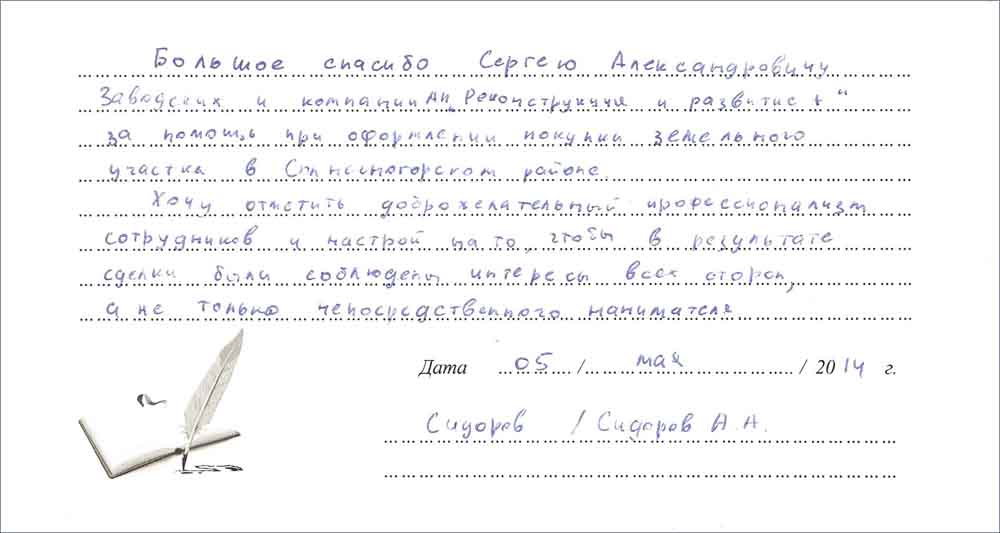 Большое спасибо Сергею Александровичу
Заводских и компании АН „Реконструкция и развитие +“
за помощь при оформлении покупки земельного
участка в Солнечногорском районе.
Хочу отметить доброжелательный профессионализм
сотрудников и настрой на то, чтобы в результате
сделки были соблюдены интересы всех сторон,
а не только непосредственного нанимателя
Дата 05 / мая / 2014 г.
Сидоров / Сидоров А.А.